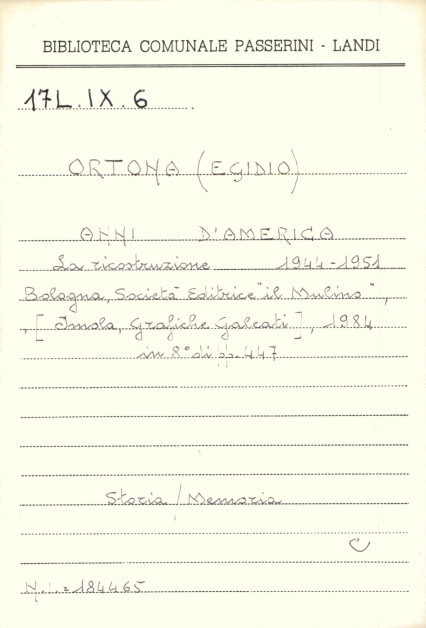 BIBLIOTECA COMUNALE PASSERINI - LANDI
17L.IX.6
ORTONA (EGIDIO)
ANNI D'AMERICA
La ricostruzione 1944-1951
Bologna, Società Editrice "il Mulino",
[Imola, Grafiche Galeati], 1984
in 8° di pp. 447
Storia / Memoria
C
N.i.=184465